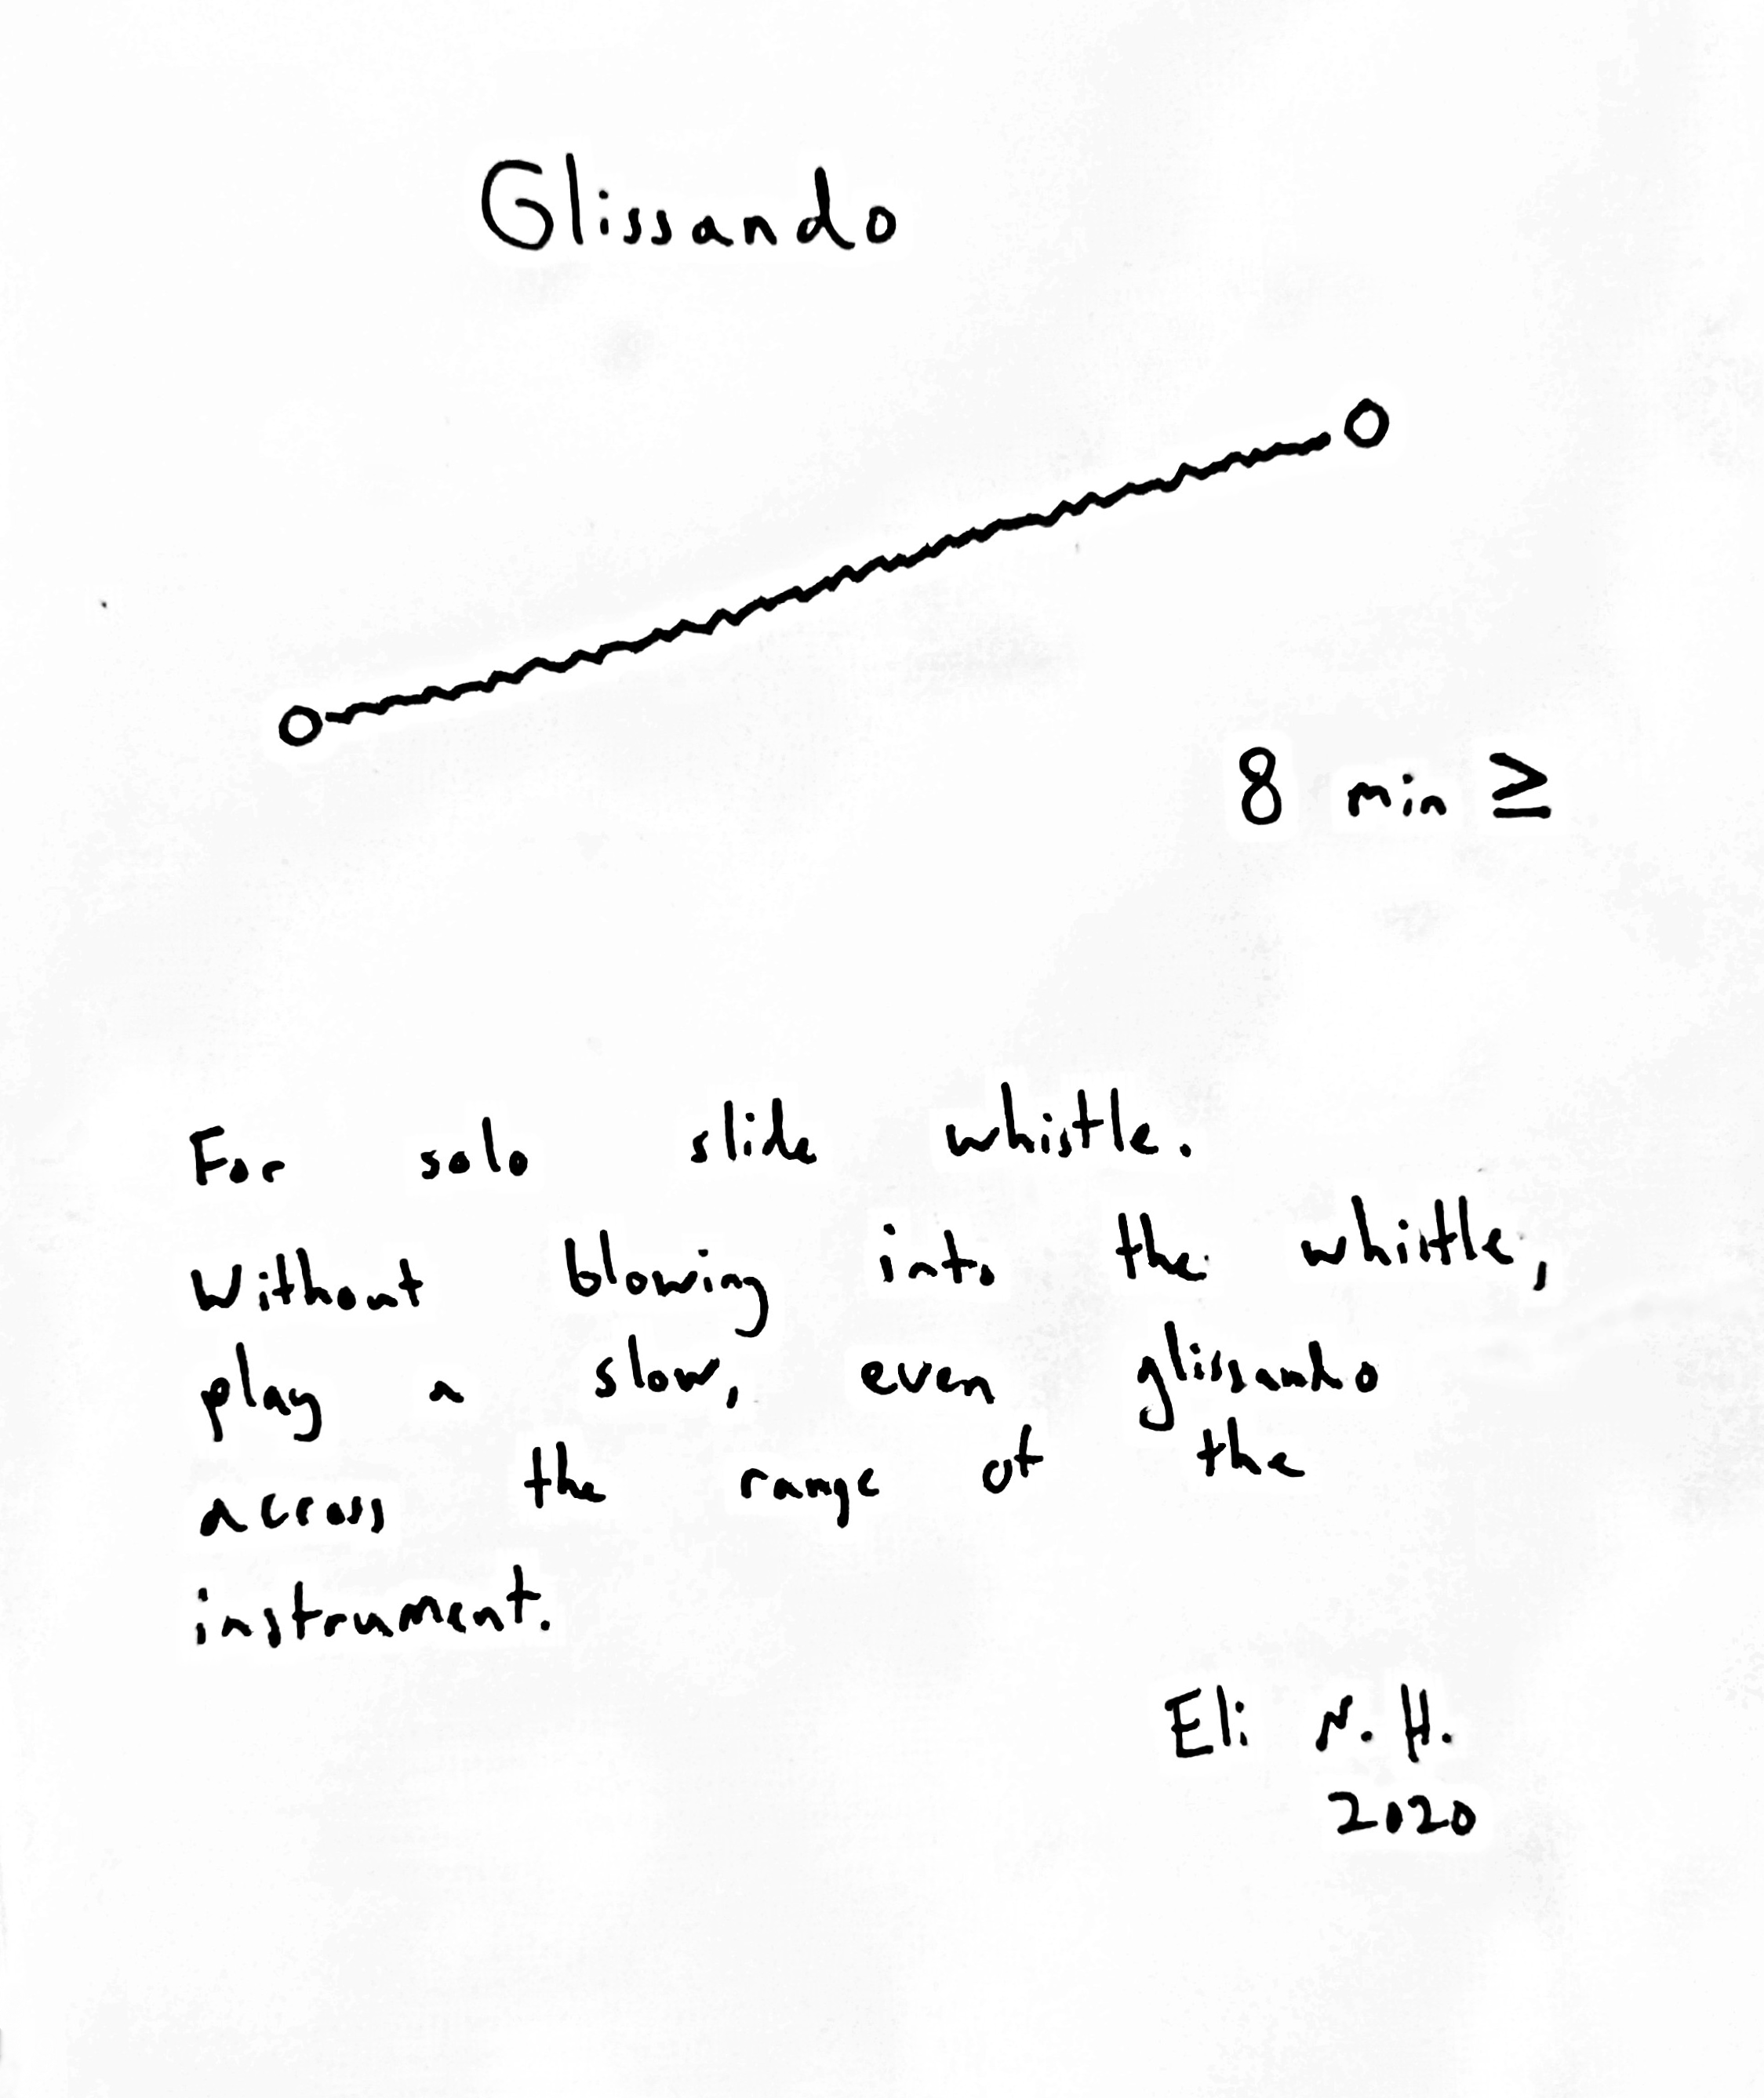 Glissando
8 min ≥
For solo slide whistle.
Without blowing into the whistle,
play a slow, even glissando
across the range of the
instrument.
Eli N. H.
2020